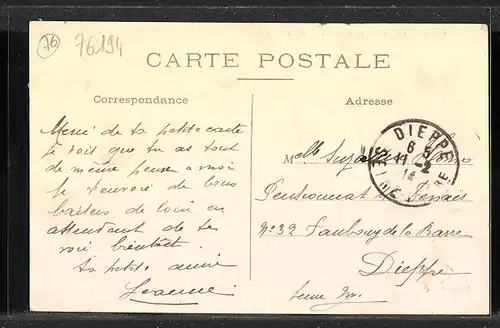 76
76194
CARTE POSTALE
Correspondance
Adresse
Merci de ta petite carte
je voit que tu as tout
de même penser a moi
je t'envoie de bons
baisers de loin en
attendant de te
voir bientôt
ta petite amie
Jeanne
DIEPPE
6 5
11-2
14
SEINE INFRE
Melle Suzanne
Pensionnat
No 32 Faubourg de la Barre
Dieppe
Seine Inf.